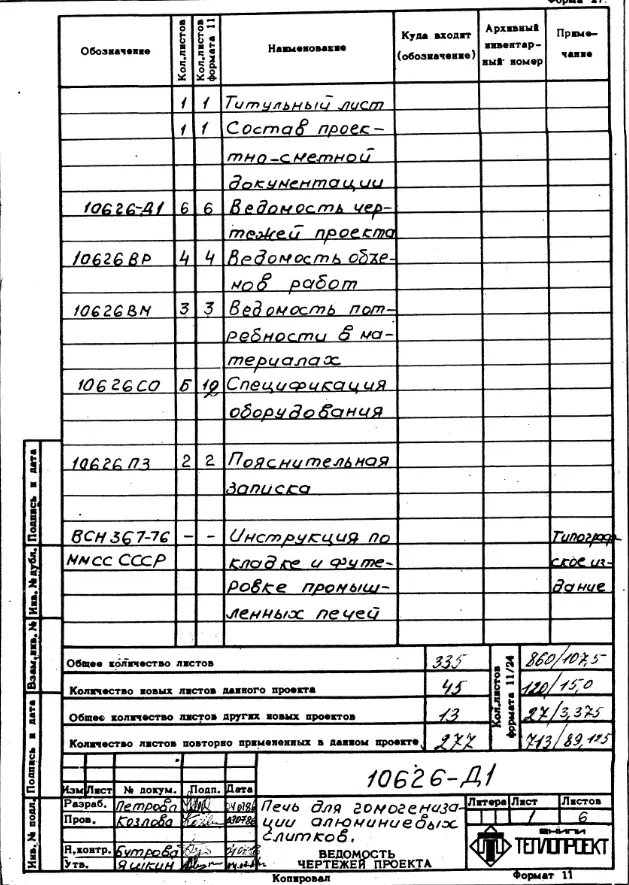 Форма 27.
Обозначение Кол.листов Кол.листов формата 11 Наименование Куда входит (обозначение) Архивный инвентар- ный номер Приме- чание
1 1 Титульный лист
1 1 Состав проек-
тно-сметной
документации
10626-Д1 6 6 Ведомость чер-
тежей проекта
10626 ВР 4 4 Ведомость объе-
мов работ
10626 ВМ 3 3 Ведомость пот-
ребности в ма-
териалах
10626 СО Б 12 Спецификация
оборудования
10626 ПЗ 2 2 Пояснительная
записка
ВСН 367-76 - - Инструкция по Типограф-
ММСС СССР кладке и футе- ское из-
ровке промыш- дание
ленных печей
Общее количество листов 335 860/107,5
Количество новых листов данного проекта 45 120/15,0
Общее количество листов других новых проектов 13 27/3,375
Количество листов повторно примененных в данном проекте 277 713/89,125
Кол.листов формата 11/24
Инв. № подл. Подпись и дата Взам.инв. № Инв. № дубл. Подпись и дата
10626-Д1
Изм Лист № докум. Подп. Дата
Разраб. Петрова
Пров. Козлова
Н.контр. Бутрова
Утв. Яшкин
Печь для гомогениза-
ции алюминиевых
слитков.
ВЕДОМОСТЬ
ЧЕРТЕЖЕЙ ПРОЕКТА
Литера Лист Листов
1 6
ВНИПИ
ТЕПЛОПРОЕКТ
Копировал Формат 11